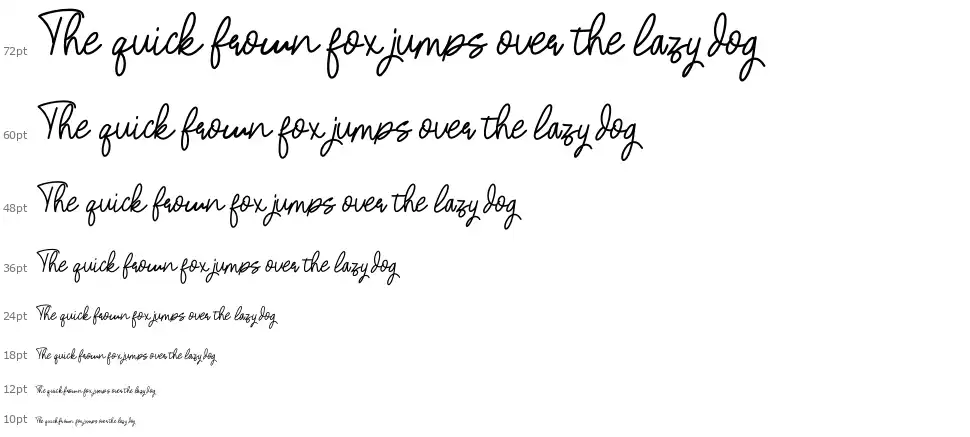 72pt The quick frown fox jumps over the lazy dog
60pt The quick frown fox jumps over the lazy dog
48pt The quick frown fox jumps over the lazy dog
36pt The quick frown fox jumps over the lazy dog
24pt The quick frown fox jumps over the lazy dog
18pt The quick frown fox jumps over the lazy dog
12pt The quick frown fox jumps over the lazy dog
10pt The quick frown fox jumps over the lazy dog